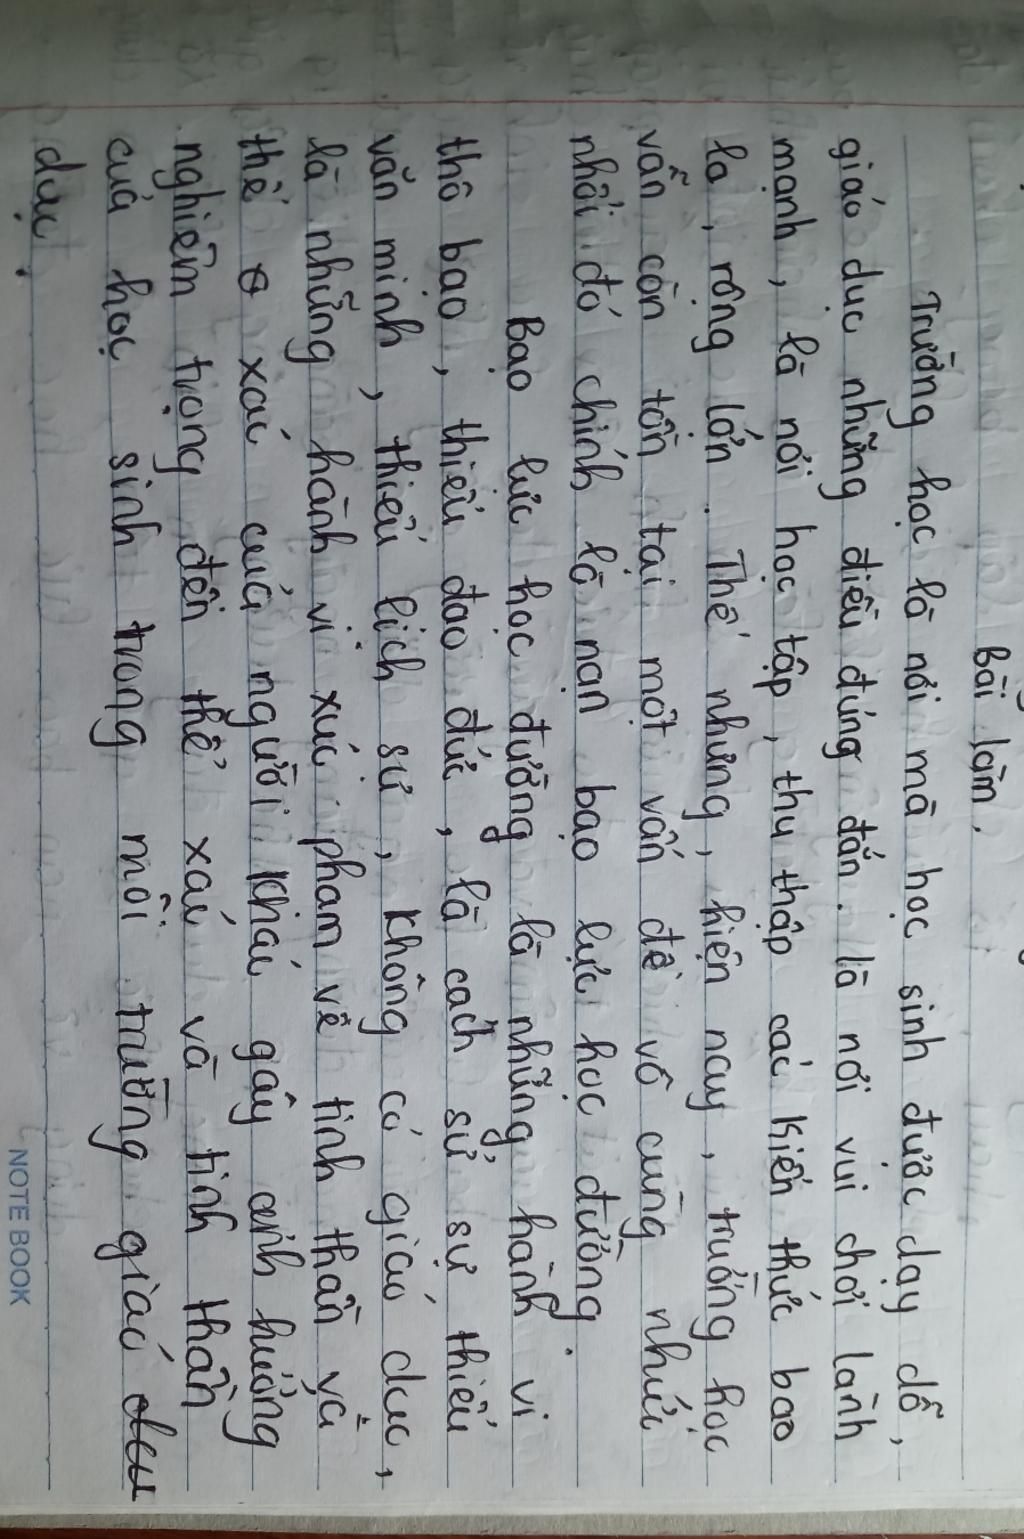 Bài làm.
Trường học là nơi mà học sinh được dạy dỗ,
giáo dục những điều đúng đắn. là nơi vui chơi lành
mạnh, là nơi học tập, thu thập các kiến thức bao
la, rộng lớn. Thế nhưng, hiện nay, trường học
vẫn còn tồn tại một vấn đề vô cùng nhức
nhối đó chính là nạn bạo lực học đường.
Bạo lực học đường là những hành vi
thô bạo, thiếu đạo đức, là cách sử sự thiếu
văn minh, thiếu lịch sự, không có giáo dục,
là những hành vi xúc phạm về tinh thần và
thể xác của người khác gây ảnh hưởng
nghiêm trọng đến thể xác và tinh thần
của học sinh trong môi trường giáo
dục.
NOTE BOOK